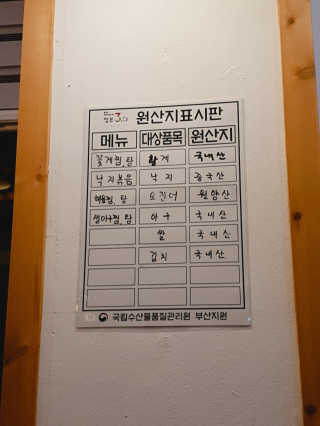 정부3.0 원산지표시판
메뉴 대상품목 원산지
꽃게찜,탕 활게 국내산
낙지볶음 낙지 중국산
해물찜,탕 오징어 원양산
생아구찜,탕 아구 국내산
쌀 국내산
김치 국내산
국립수산물품질관리원 부산지원